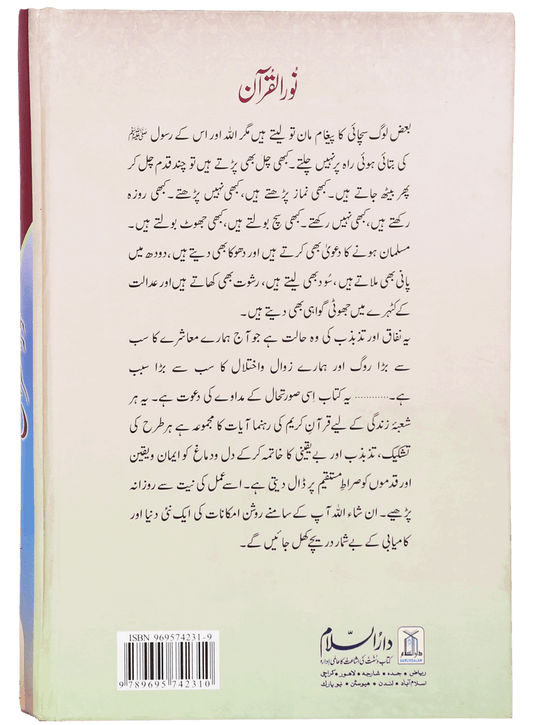 نُورالقُرآن
بعض لوگ سچائی کا پیغام مان تو لیتے ہیں مگر اللہ اور اس کے رسول ﷺ
کی بتائی ہوئی راہ پر نہیں چلتے۔ کبھی چل بھی پڑتے ہیں تو چند قدم چل کر
پھر بیٹھ جاتے ہیں۔ کبھی نماز پڑھتے ہیں، کبھی نہیں پڑھتے۔ کبھی روزہ
رکھتے ہیں، کبھی نہیں رکھتے۔ کبھی سچ بولتے ہیں، کبھی جھوٹ بولتے ہیں۔
مسلمان ہونے کا دعویٰ بھی کرتے ہیں اور دھوکا بھی دیتے ہیں، دودھ میں
پانی بھی ملاتے ہیں، سُود بھی لیتے ہیں، رشوت بھی کھاتے ہیں اور عدالت
کے کٹہرے میں جھوٹی گواہی بھی دیتے ہیں۔
یہ نفاق اور تذبذب کی وہ حالت ہے جو آج ہمارے معاشرے کا سب
سے بڑا روگ اور ہمارے زوال واختلال کا سب سے بڑا سبب
ہے۔............ یہ کتاب اِسی صورتحال کے مداوے کی دعوت ہے۔ یہ ہر
شعبۂ زندگی کے لیے قرآنِ کریم کی رہنما آیات کا مجموعہ ہے ہر طرح کی
تشکیک، تذبذب اور بے یقینی کا خاتمہ کرکے دل ودماغ کو ایمان ویقین
اور قدموں کو صراطِ مستقیم پر ڈال دیتی ہے۔ اسے عمل کی نیت سے روزانہ
پڑھیے۔ ان شاء اللہ آپ کے سامنے روشن امکانات کی ایک نئی دنیا اور
کامیابی کے بے شمار دریچے کھل جائیں گے۔
ISBN 969574231-9
9 789695 742310
دارُالسّلام
کتاب وسنّت کی اشاعت کا عالمی ادارہ
ریاض • جدہ • شارجہ • لاہور • کراچی
اسلام آباد • لندن • ہیوسٹن • نیو یارک
دارالسلام
DARUSSALAM